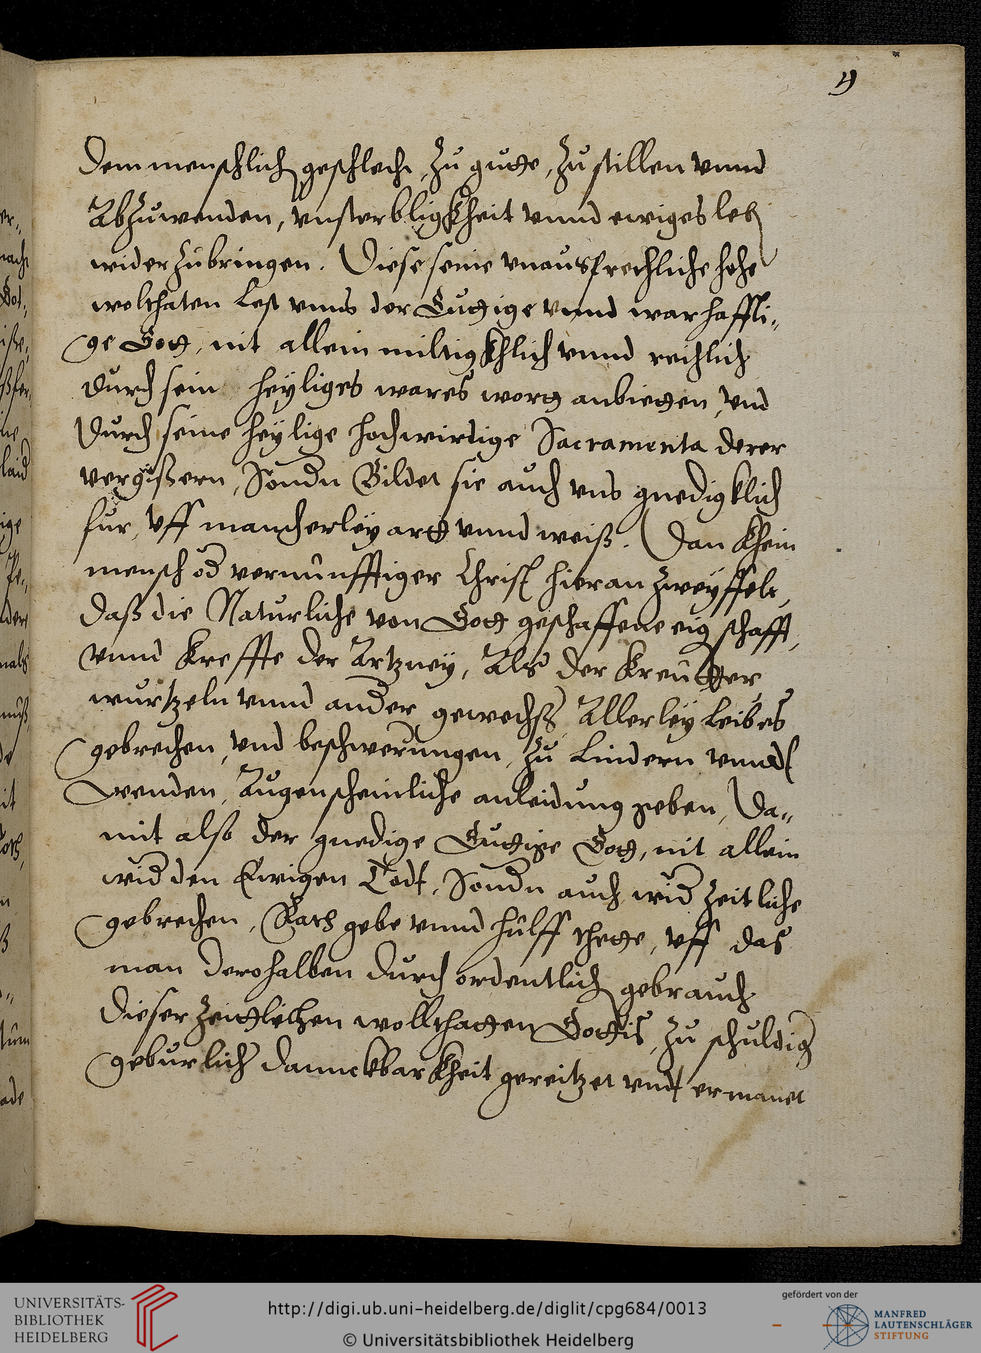 4
dem menschlich geschlecht, zu gutte, zu stillen vnnd
Abzuwenden, vnsterbligkheit vnnd ewiges leb
wider zubringen. Diese seine vnaussprechliche hohe
wolthaten lest vnns der Guttige vnnd warhaffti„
ge Gott, nit allein miltigkhlich vnnd reichlich
durch sein heyliges wares wortt anbietten, vnd
Durch seine heylige hochwirdige Sacramenta derer
vergißern, Sondn Bildet sie auch vns gnedigklich
fur, vff mancherley artt vnnd weiß. Dan khein
mensch od vernunfftiger Christ hieran zweyffelt,
daß die Naturliche von Gott geschaffene eigschafft,
vnnd kreffte der Artzney, Als der kreutter
wurtzeln vnnd ander gewechß Allerley leibes
gebrechen, vnd beschwerungen, zu lindern vnnd
wenden, Augenscheinliche anleidung geben, Da„
mit alß der gnedige Guttige Gott, nit allein
wid den Ewigen Todt, Sondn auch wid zeitliche
gebrechen, Rath gebe vnnd hulff thette, vff das
man derohalben durch ordentlich gebrauch
dieser zeittlichen wollthatten Gottis, zu schuldig
geburlich dannckbarkheit gereitzet vndt ermanet
UNIVERSITÄTS-
BIBLIOTHEK
HEIDELBERG
http://digi.ub.uni-heidelberg.de/diglit/cpg684/0013
© Universitätsbibliothek Heidelberg
gefördert von der
MANFRED
LAUTENSCHLÄGER
STIFTUNG